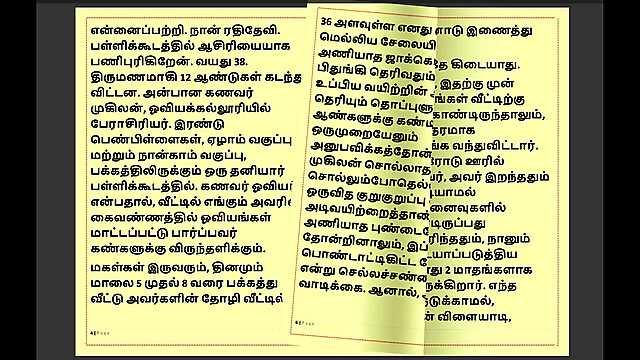 என்னைப்பற்றி. நான் ரதிதேவி.
பள்ளிக்கூடத்தில் ஆசிரியையாக
பணிபுரிகிறேன். வயது 38.
திருமணமாகி 12 ஆண்டுகள் கடந்த
விட்டன. அன்பான கணவர்
முகிலன், ஓவியக்கல்லூரியில்
பேராசிரியர். இரண்டு
பெண்பிள்ளைகள், ஏழாம் வகுப்பு
மற்றும் நான்காம் வகுப்பு,
பக்கத்திலிருக்கும் ஒரு தனியார்
பள்ளிக்கூடத்தில். கணவர் ஓவியர்
என்பதால், வீட்டில் எங்கும் அவரி
கைவண்ணத்தில் ஓவியங்கள்
மாட்டப்பட்டு பார்ப்பவர்
கண்களுக்கு விருந்தளிக்கும்.
மகள்கள் இருவரும், தினமும்
மாலை 5 முதல் 8 வரை பக்கத்து
வீட்டு அவர்களின் தோழி வீட்டில்
4 | Page
36 அளவுள்ள எனது
மெல்லிய சேலையி
அணியாத ஜாக்கெ
பிதுங்கி தெரிவதும்
உப்பிய வயிற்றின்
தெரியும் தொப்புளு
ஆண்களுக்கு கண்டி
ஒருமுறையேனும்
அனுபவிக்கத்தோன்
முகிலன் சொல்லாத
சொல்லும்போதெல்
ஒருவித குறுகுறுப்பு
அடிவயிற்றைத்தாண்
அணியாத புண்டை
தோன்றினாலும், இப்
பொண்டாட்டிகிட்ட
என்று செல்லச்சண்
வாடிக்கை. ஆனால்,
ளாடு இணைத்து
த கிடையாது.
, இதற்கு முன்
ங்கள் வீட்டிற்கு
கொண்டிருந்தாலும்,
தரமாக
ங்க வந்துவிட்டார்.
ரோடு ஊரில்
ர், அவர் இறந்ததும்
யாமல்
னைவுகளில்
டிருப்பது
ரிந்ததும், நானும்
டயாப்படுத்திய
து 2 மாதங்களாக
ருக்கிறார். எந்த
டுக்காமல்,
ன் விளையாடி,